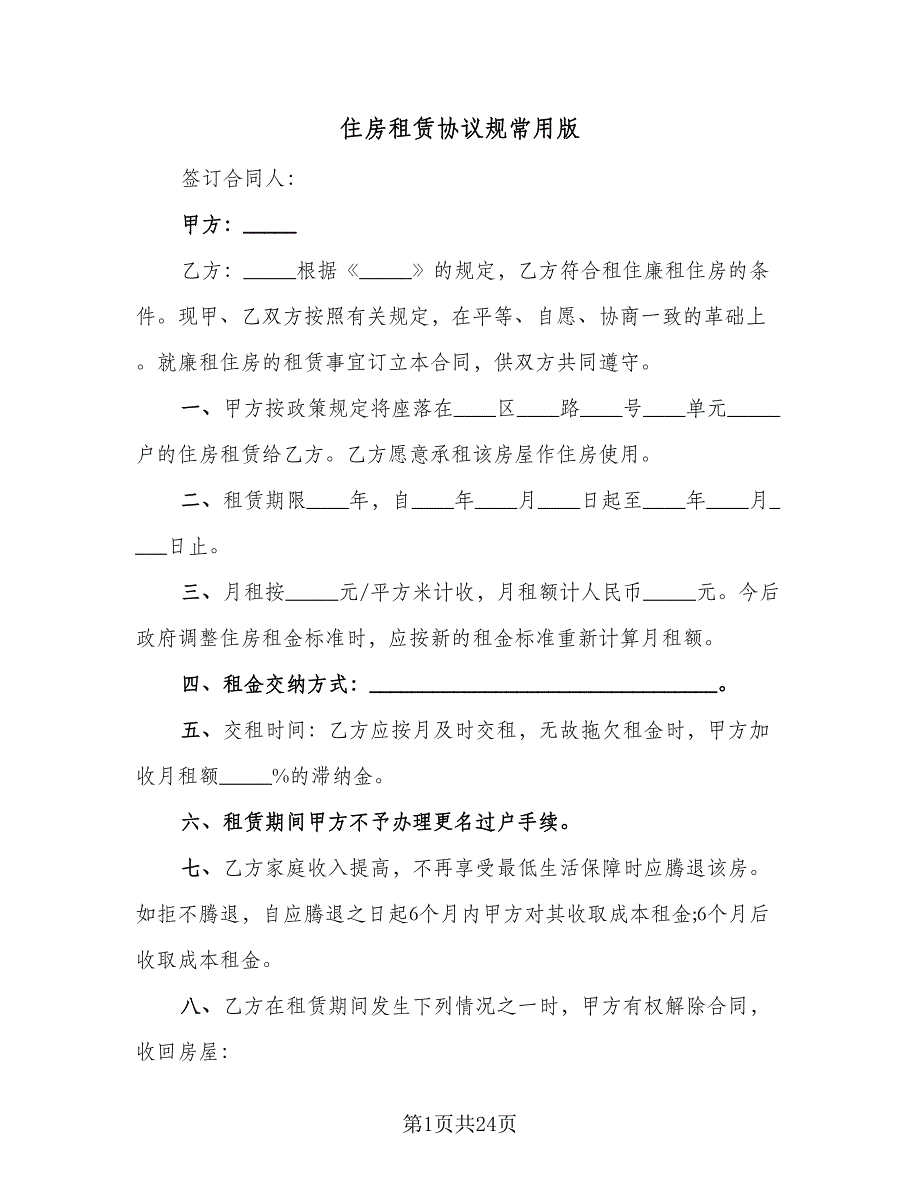 住房租赁协议规常用版
签订合同人：
甲方：_____
乙方：_____根据《_____》的规定，乙方符合租住廉租住房的条
件。现甲、乙双方按照有关规定，在平等、自愿、协商一致的革础上
。就廉租住房的租赁事宜订立本合同，供双方共同遵守。
一、甲方按政策规定将座落在____区____路____号____单元_____
户的住房租赁给乙方。乙方愿意承租该房屋作住房使用。
二、租赁期限____年，自____年____月____日起至____年____月_
___日止。
三、月租按_____元/平方米计收，月租额计人民币_____元。今后
政府调整住房租金标准时，应按新的租金标准重新计算月租额。
四、租金交纳方式：_________________________________。
五、交租时间：乙方应按月及时交租，无故拖欠租金时，甲方加
收月租额_____%的滞纳金。
六、租赁期间甲方不予办理更名过户手续。
七、乙方家庭收入提高，不再享受最低生活保障时应腾退该房。
如拒不腾退，自应腾退之日起6个月内甲方对其收取成本租金;6个月后
收取成本租金。
八、乙方在租赁期间发生下列情况之一时，甲方有权解除合同，
收回房屋：
第1页共24页